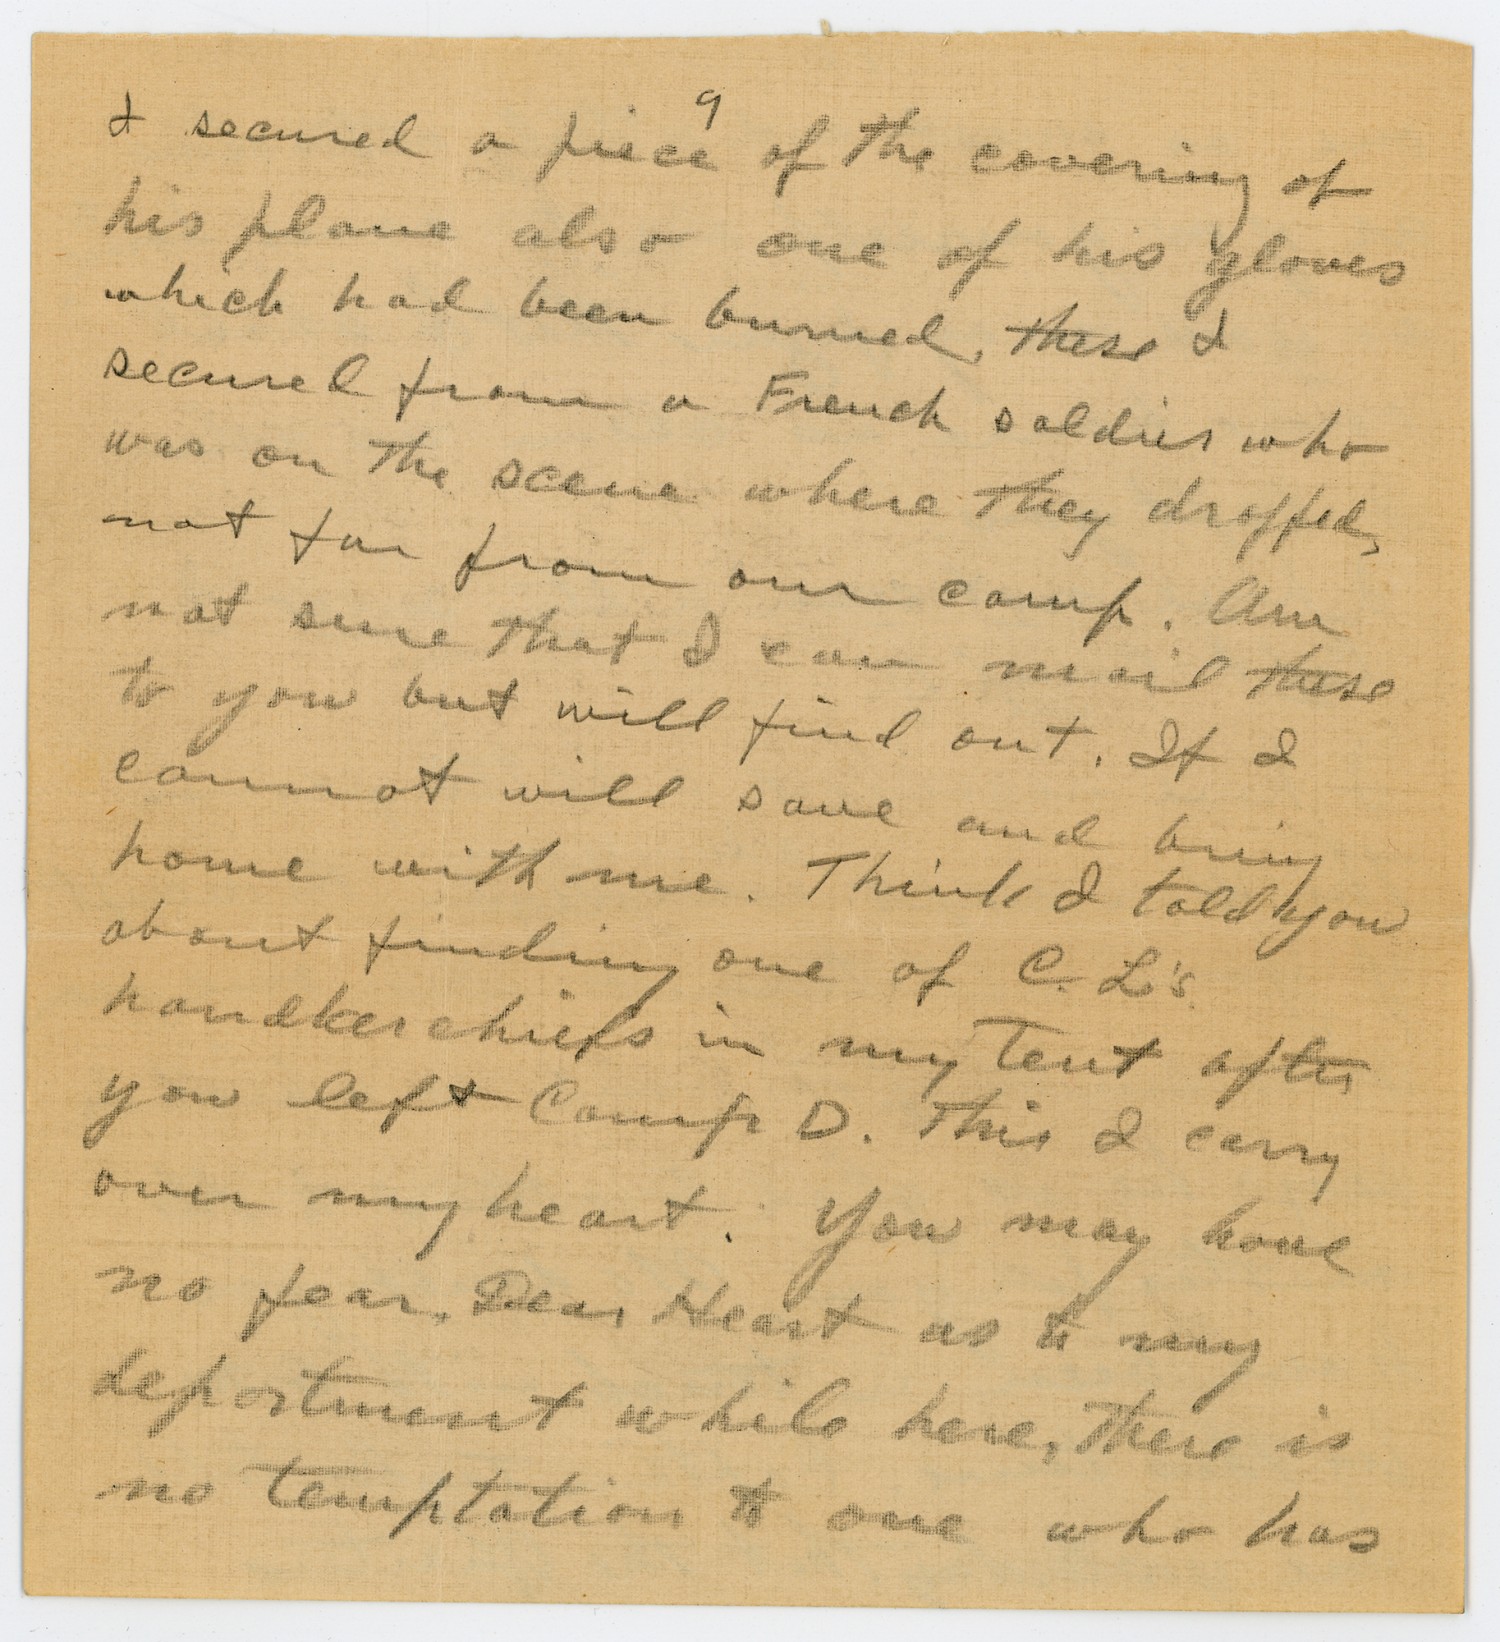 9
I secured a piece of the covering of
his plane also one of his gloves
which had been burned, these I
secured from a French soldier who
was on the scene where they dropped,
not far from our camp. Am
not sure that I can mail these
to you but will find out. If I
cannot will save and bring
home with me. Think I told you
about finding one of C. L's
handkerchiefs in my tent after
you left Camp D. This I carry
over my heart. You may have
no fear, Dear Heart as to my
deportment while here, there is
no temptation to one who has